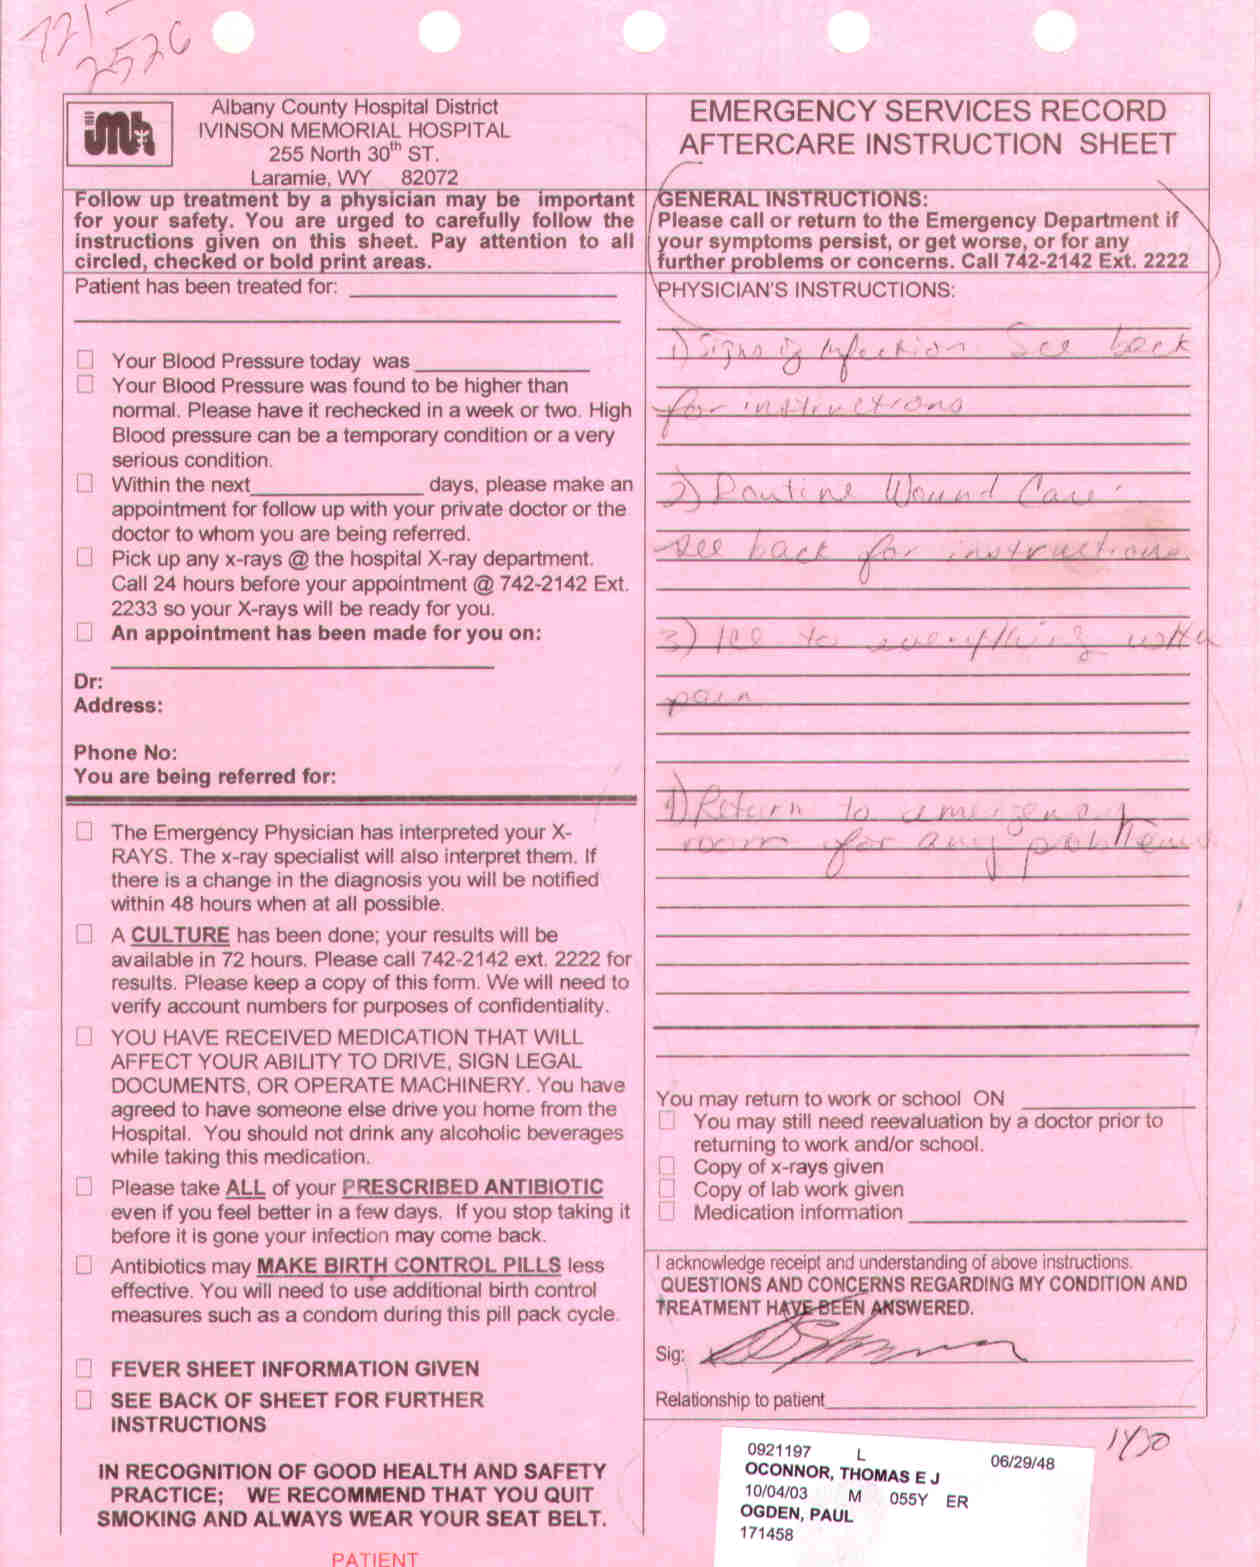 721-
2526
imh
Albany County Hospital District
IVINSON MEMORIAL HOSPITAL
255 North 30th ST.
Laramie, WY 82072
Follow up treatment by a physician may be important
for your safety. You are urged to carefully follow the
instructions given on this sheet. Pay attention to all
circled, checked or bold print areas.
Patient has been treated for:
Your Blood Pressure today was
Your Blood Pressure was found to be higher than
normal. Please have it rechecked in a week or two. High
Blood pressure can be a temporary condition or a very
serious condition.
Within the next days, please make an
appointment for follow up with your private doctor or the
doctor to whom you are being referred.
Pick up any x-rays @ the hospital X-ray department.
Call 24 hours before your appointment @ 742-2142 Ext.
2233 so your X-rays will be ready for you.
An appointment has been made for you on:
Dr:
Address:
Phone No:
You are being referred for:
The Emergency Physician has interpreted your X-
RAYS. The x-ray specialist will also interpret them. If
there is a change in the diagnosis you will be notified
within 48 hours when at all possible.
A CULTURE has been done; your results will be
available in 72 hours. Please call 742-2142 ext. 2222 for
results. Please keep a copy of this form. We will need to
verify account numbers for purposes of confidentiality.
YOU HAVE RECEIVED MEDICATION THAT WILL
AFFECT YOUR ABILITY TO DRIVE, SIGN LEGAL
DOCUMENTS, OR OPERATE MACHINERY. You have
agreed to have someone else drive you home from the
Hospital. You should not drink any alcoholic beverages
while taking this medication.
Please take ALL of your PRESCRIBED ANTIBIOTIC
even if you feel better in a few days. If you stop taking it
before it is gone your infection may come back.
Antibiotics may MAKE BIRTH CONTROL PILLS less
effective. You will need to use additional birth control
measures such as a condom during this pill pack cycle.
FEVER SHEET INFORMATION GIVEN
SEE BACK OF SHEET FOR FURTHER
INSTRUCTIONS
IN RECOGNITION OF GOOD HEALTH AND SAFETY
PRACTICE; WE RECOMMEND THAT YOU QUIT
SMOKING AND ALWAYS WEAR YOUR SEAT BELT.
PATIENT
EMERGENCY SERVICES RECORD
AFTERCARE INSTRUCTION SHEET
GENERAL INSTRUCTIONS:
Please call or return to the Emergency Department if
your symptoms persist, or get worse, or for any
further problems or concerns. Call 742-2142 Ext. 2222
PHYSICIAN'S INSTRUCTIONS:
1) Signs of Infection. See back
for instructions
2) Routine Wound Care.
see back for instructions.
3) Ice to everything with
pain
4) Return to emergency
room for any problems
You may return to work or school ON
You may still need reevaluation by a doctor prior to
returning to work and/or school.
Copy of x-rays given
Copy of lab work given
Medication information
I acknowledge receipt and understanding of above instructions.
QUESTIONS AND CONCERNS REGARDING MY CONDITION AND
TREATMENT HAVE BEEN ANSWERED.
Sig:
Relationship to patient
1430
0921197 L 06/29/48
OCONNOR, THOMAS E J
10/04/03 M 055Y ER
OGDEN, PAUL
171458